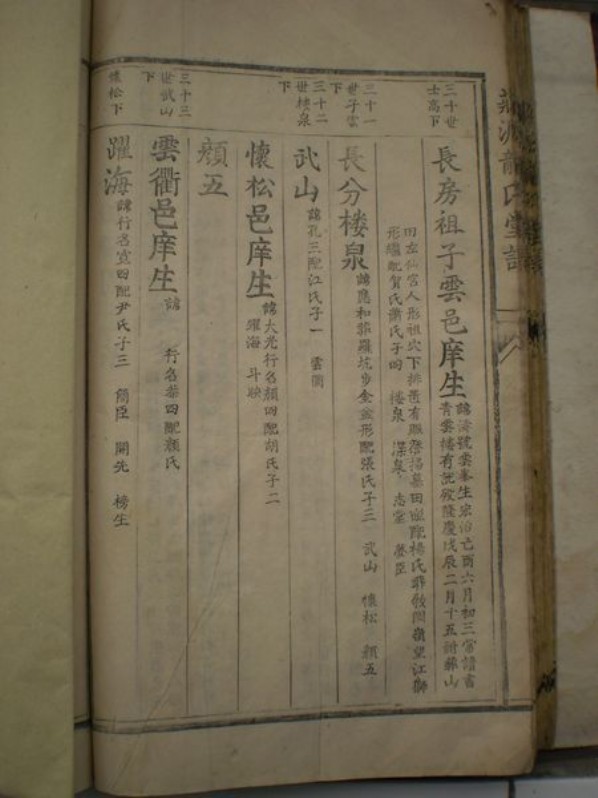 三十世
士高下
長房祖子雲邑庠生
諱濤號雲峯生宏治己酉六月初三常讀書
青雲樓有說 隆慶戊辰二月十五祔葬山
田左仙宮人形祖穴下排 有 祭掃墓田 配楊氏葬 關嶺望江獅
形繼配賀氏蕭氏子四 樓泉 深泉 志堂
三十一
世子雲
下
長分楼泉
諱應和葬羅坑步金 形配張氏子三 武山 懷松 顏五
三十二
世楼泉
下
武山
諱孔三配江氏子一 雲衢
懷松邑庠生
諱大光行名顏四配胡氏子二
躍海 斗映
顏五
三十三
世武山
下
雲衢邑庠生
諱 行名恭四配顏氏
懷松下
躍海
諱行名寬四配尹氏子三 簡臣 開先 榜生